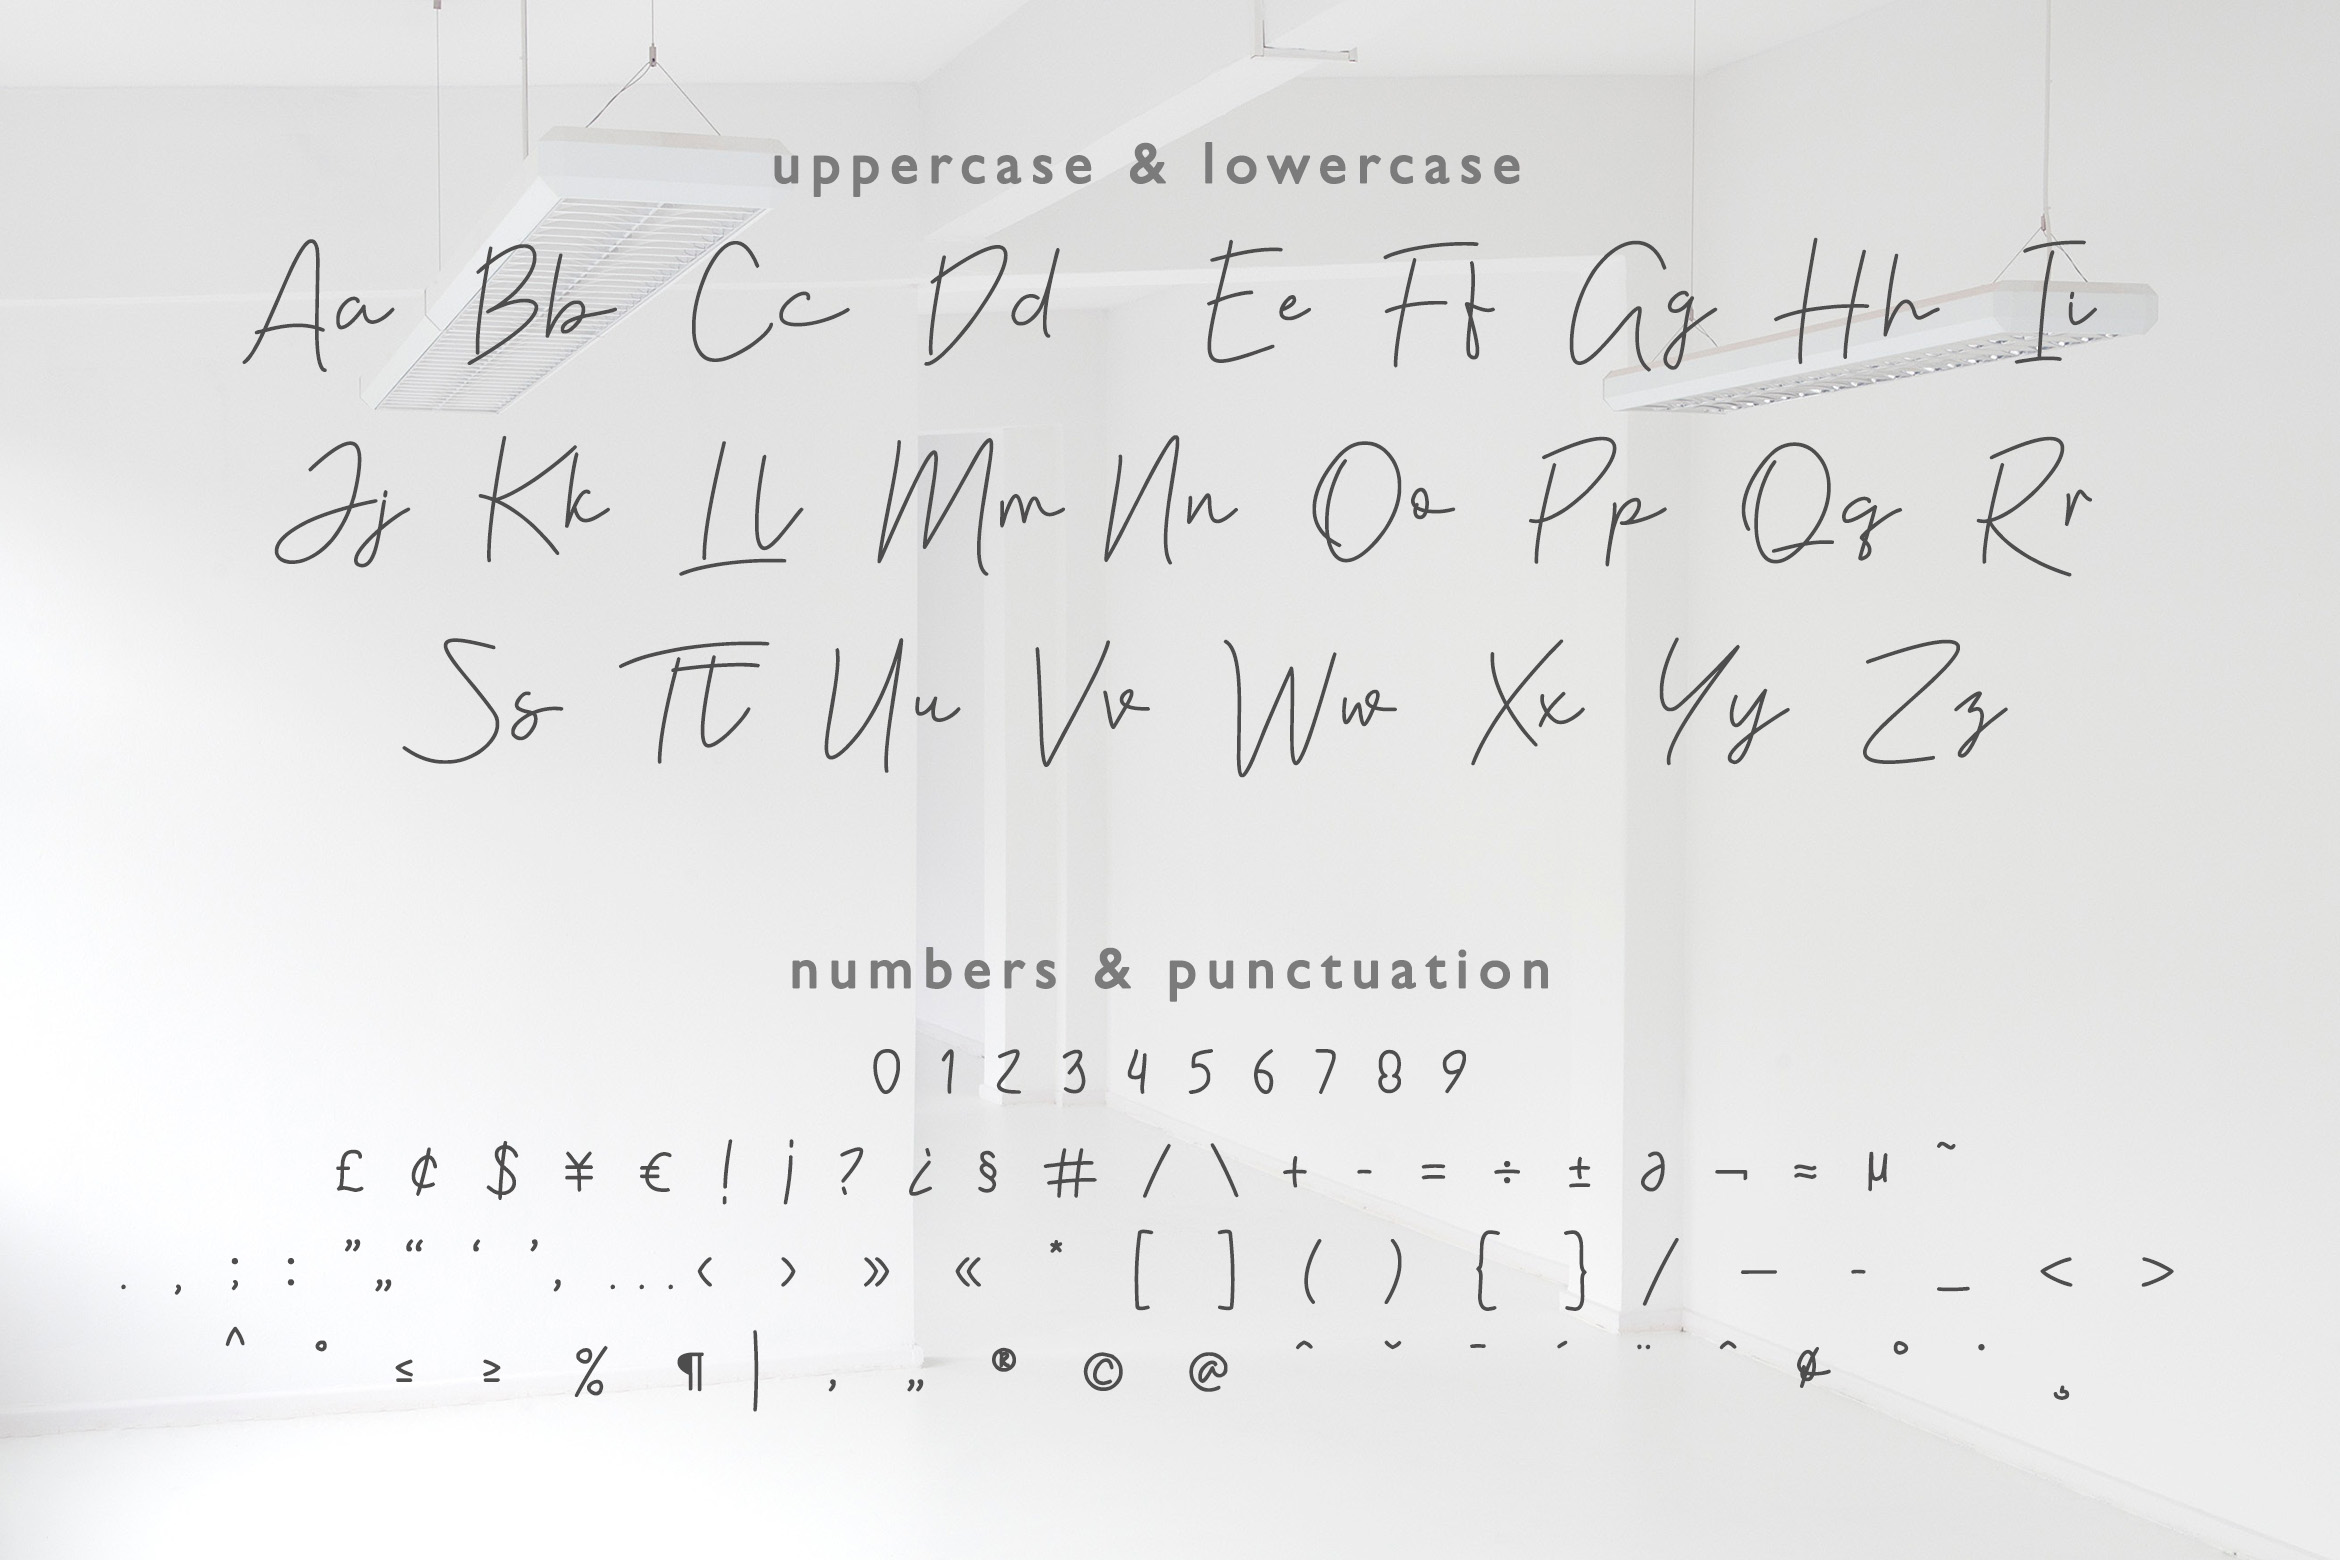 uppercase & lowercase
Aa Bb Cc Dd Ee Ff Gg Hh Ii
Jj Kk Ll Mm Nn Oo Pp Qq Rr
Ss Tt Uu Vv Ww Xx Yy Zz
numbers & punctuation
0 1 2 3 4 5 6 7 8 9
£ ¢ $ ¥ € ! ¡ ? ¿ § # / \ + - = ÷ ± ∂ ¬ ≈ µ ˜
. , ; : ” „ “ ‘ ’ , ... ‹ › » « * [ ] ( ) { } / — - _ < >
^ ° ≤ ≥ % ¶ | ‚ „ ® © @ ˆ ˇ ¯ ´ ¨ ˆ ø ˚ ˙ ¸